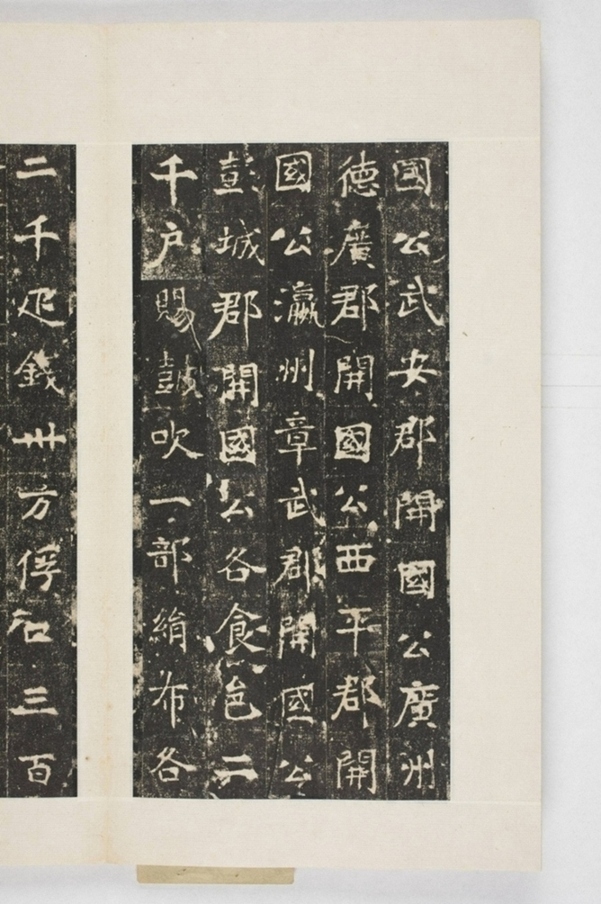 國公武安郡開國公廣州
德廣郡開國公西平郡開
國公瀛州章武郡開國公
彭城郡開國公各食邑二
千户賜鼓吹一部絹布各
二千疋錢卌方俘口三百